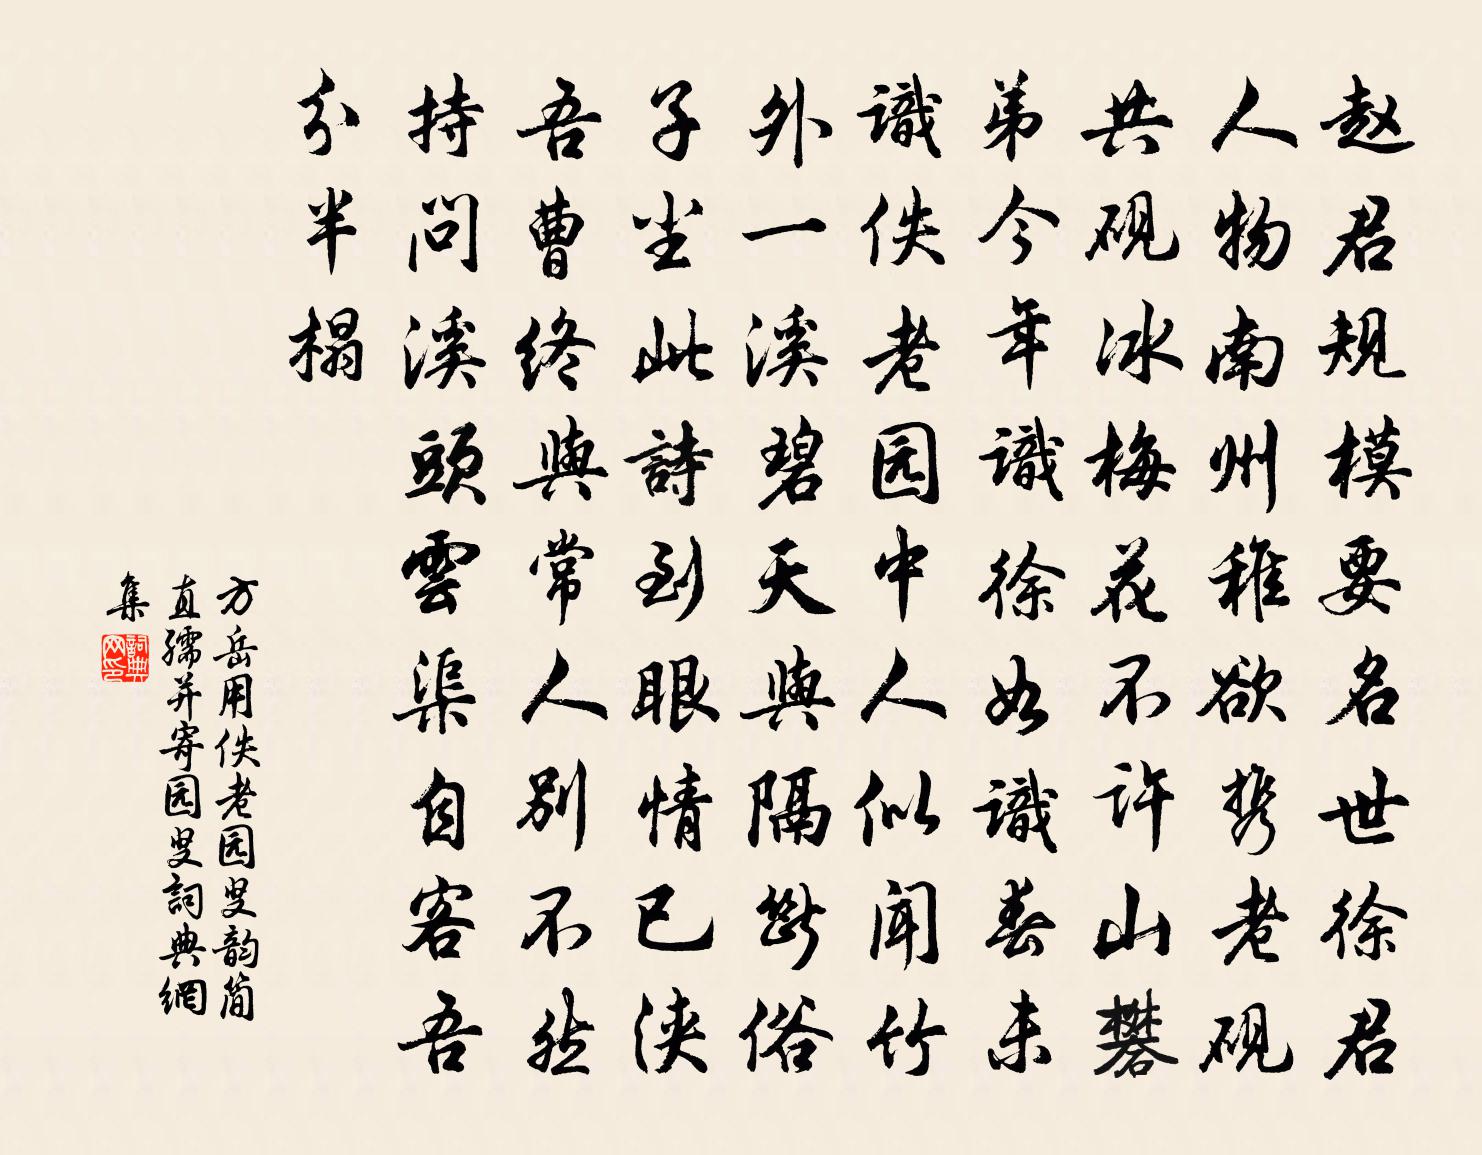 赵君规模要名世徐君
人物南州稚欲携老砚
共砚冰梅花不许山礬
弟今年識徐如識春未
識佚老园中人似闻竹
外一溪碧天與隔斷俗
子坐此詩到眼情已浹
吾曹終與常人别不然
持问溪頭雲渠自客吾
分半榻
方岳用佚老园叟韵简
直孺并寄园叟詞典網
集
詞典网印